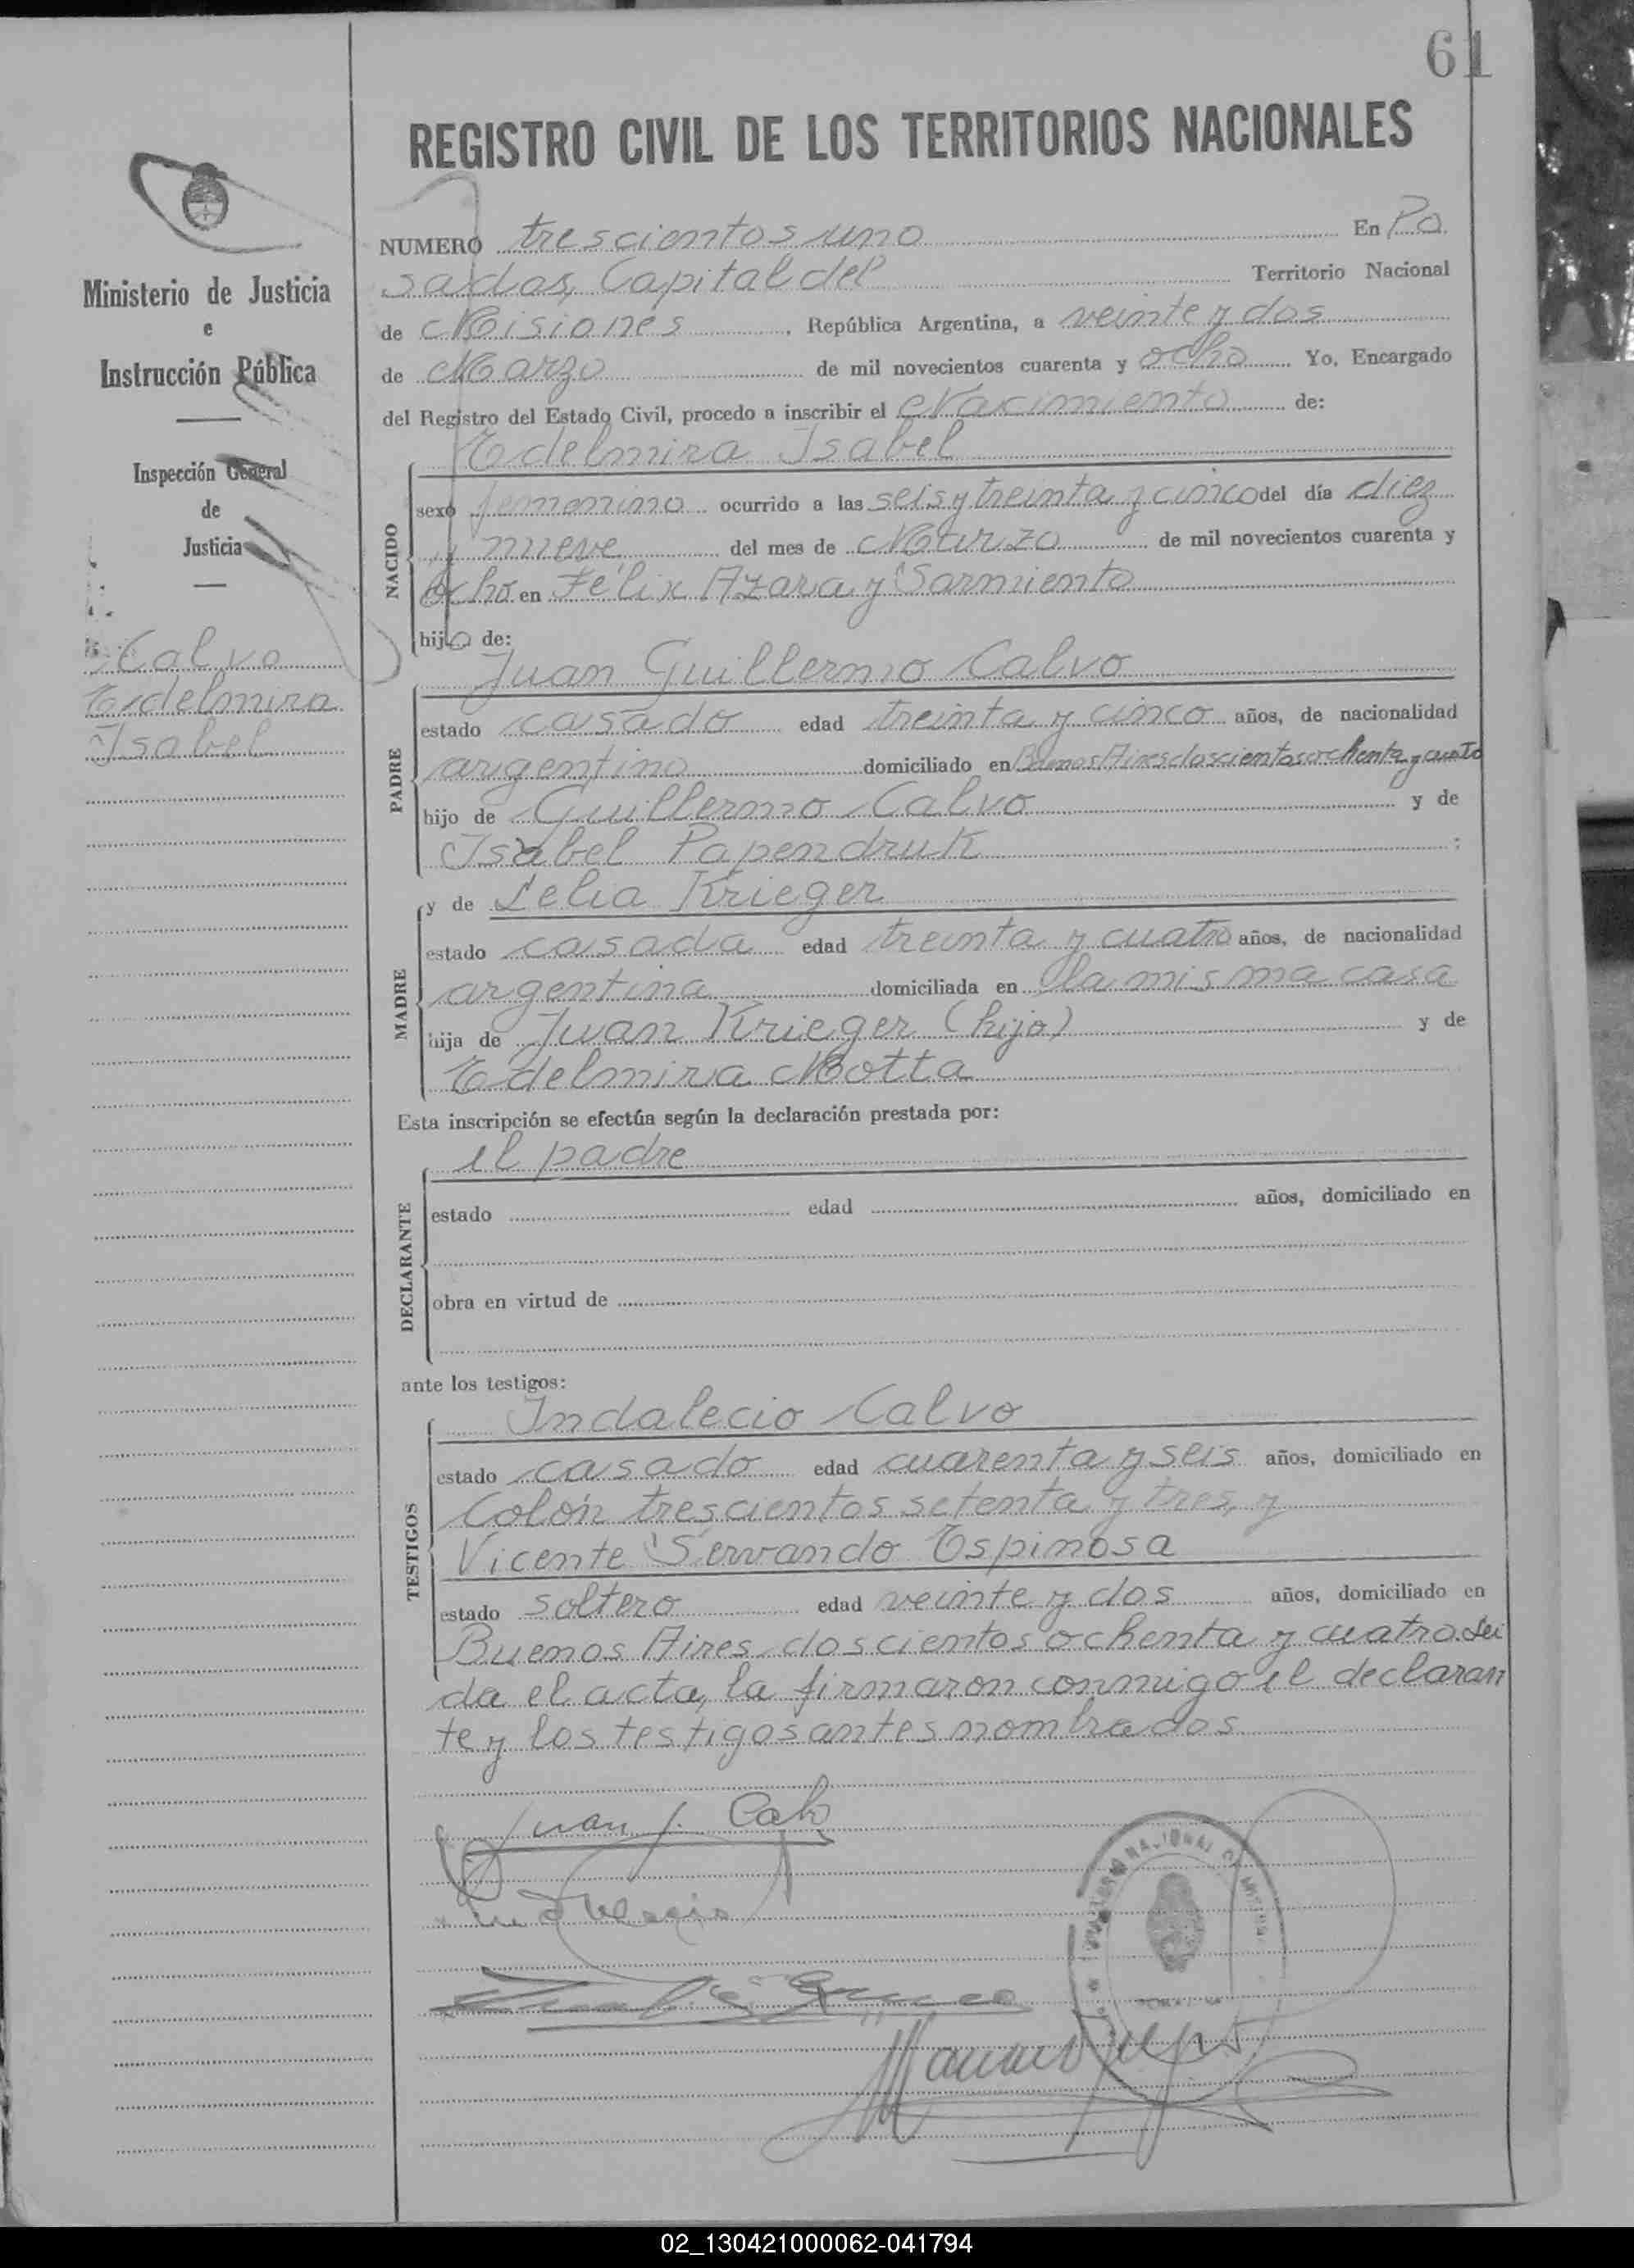 61
REGISTRO CIVIL DE LOS TERRITORIOS NACIONALES
Ministerio de Justicia
e
Instrucción Pública
Inspección General
de
Justicia
Calvo
Edelmira
Isabel
NUMERO trescientos uno En Po
sadas, Capital del Territorio Nacional
de Misiones, República Argentina, a veinte y dos
de Marzo de mil novecientos cuarenta y ocho Yo, Encargado
del Registro del Estado Civil, procedo a inscribir el Nacimiento de:
NACIDO
Edelmira Isabel
sexo femenino ocurrido a las seis y treinta y cinco del día diez
y nueve del mes de Marzo de mil novecientos cuarenta y
ocho en Félix Azara y Sarmiento
hija de:
PADRE
Juan Guillermo Calvo
estado casado edad treinta y cinco años, de nacionalidad
argentino domiciliado en Buenos Aires doscientos ochenta y cuatro
hijo de Guillermo Calvo y de
Isabel Papendruk ;
MADRE
y de Lelia Krieger
estado casada edad treinta y cuatro años, de nacionalidad
argentina domiciliada en la misma casa
hija de Juan Krieger (hijo) y de
Edelmira Motta
Esta inscripción se efectúa según la declaración prestada por:
DECLARANTE
el padre
estado edad años, domiciliado en
obra en virtud de
ante los testigos:
TESTIGOS
Indalecio Calvo
estado casado edad cuarenta y seis años, domiciliado en
Colón trescientos setenta y tres, y
Vicente Servando Espinosa
estado soltero edad veinte y dos años, domiciliado en
Buenos Aires doscientos ochenta y cuatro. Leí
da el acta, la firmaron conmigo el declaran
te y los testigos antes nombrados
Juan G. Calvo
02_130421000062-041794